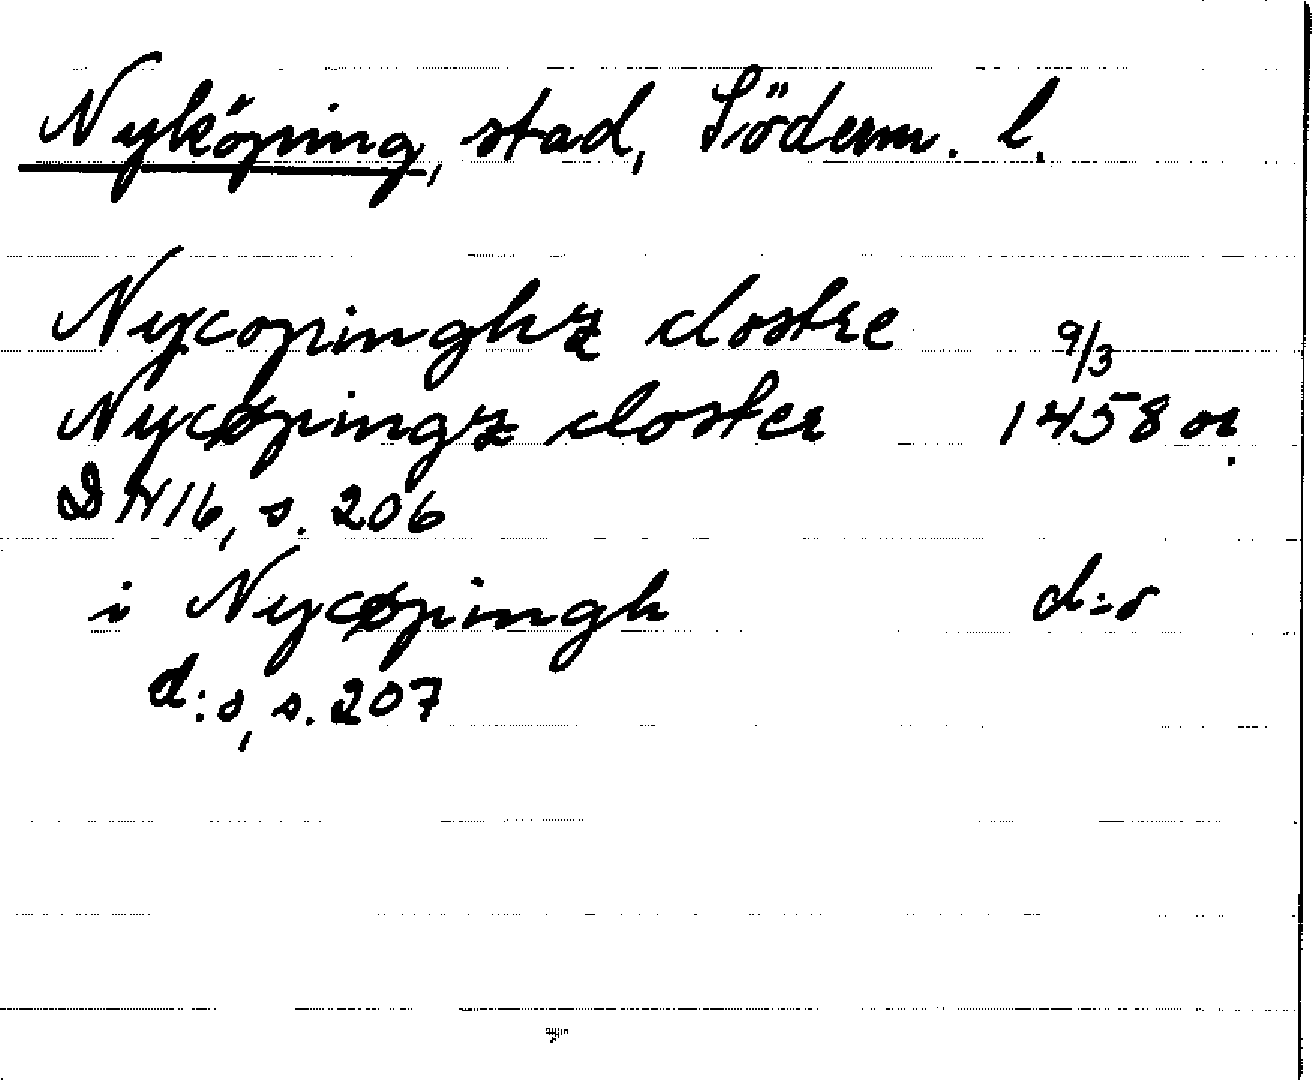 Nyköping, stad, Söderm. l.
Nycopinghz clostre 9/3
Nycøpingz closter 1458 or.
DN 16, s. 206
i Nycøpingh d:o
d:o, s. 207